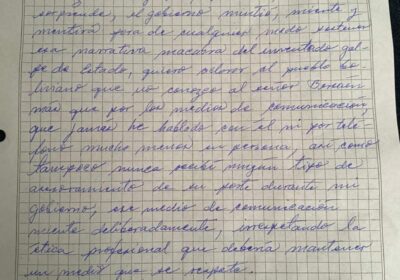 sorprende, el gobierno mintió, miente y
mentira para de cualquier modo sostener
esa narrativa macabra del inventado gol-
pe de Estado, quiero aclarar al pueblo bo-
liviano que no conozco al señor
más que por los medios de comunicación,
que jamás he hablado con él ni por telé-
fono mucho menos en persona, así como
tampoco nunca recibí ningún tipo de
asesoramiento de su parte durante mi
gobierno, ese medio de comunicación
miente deliberadamente, irrespetando la
ética profesional que debería mantener
un medio que se respete.